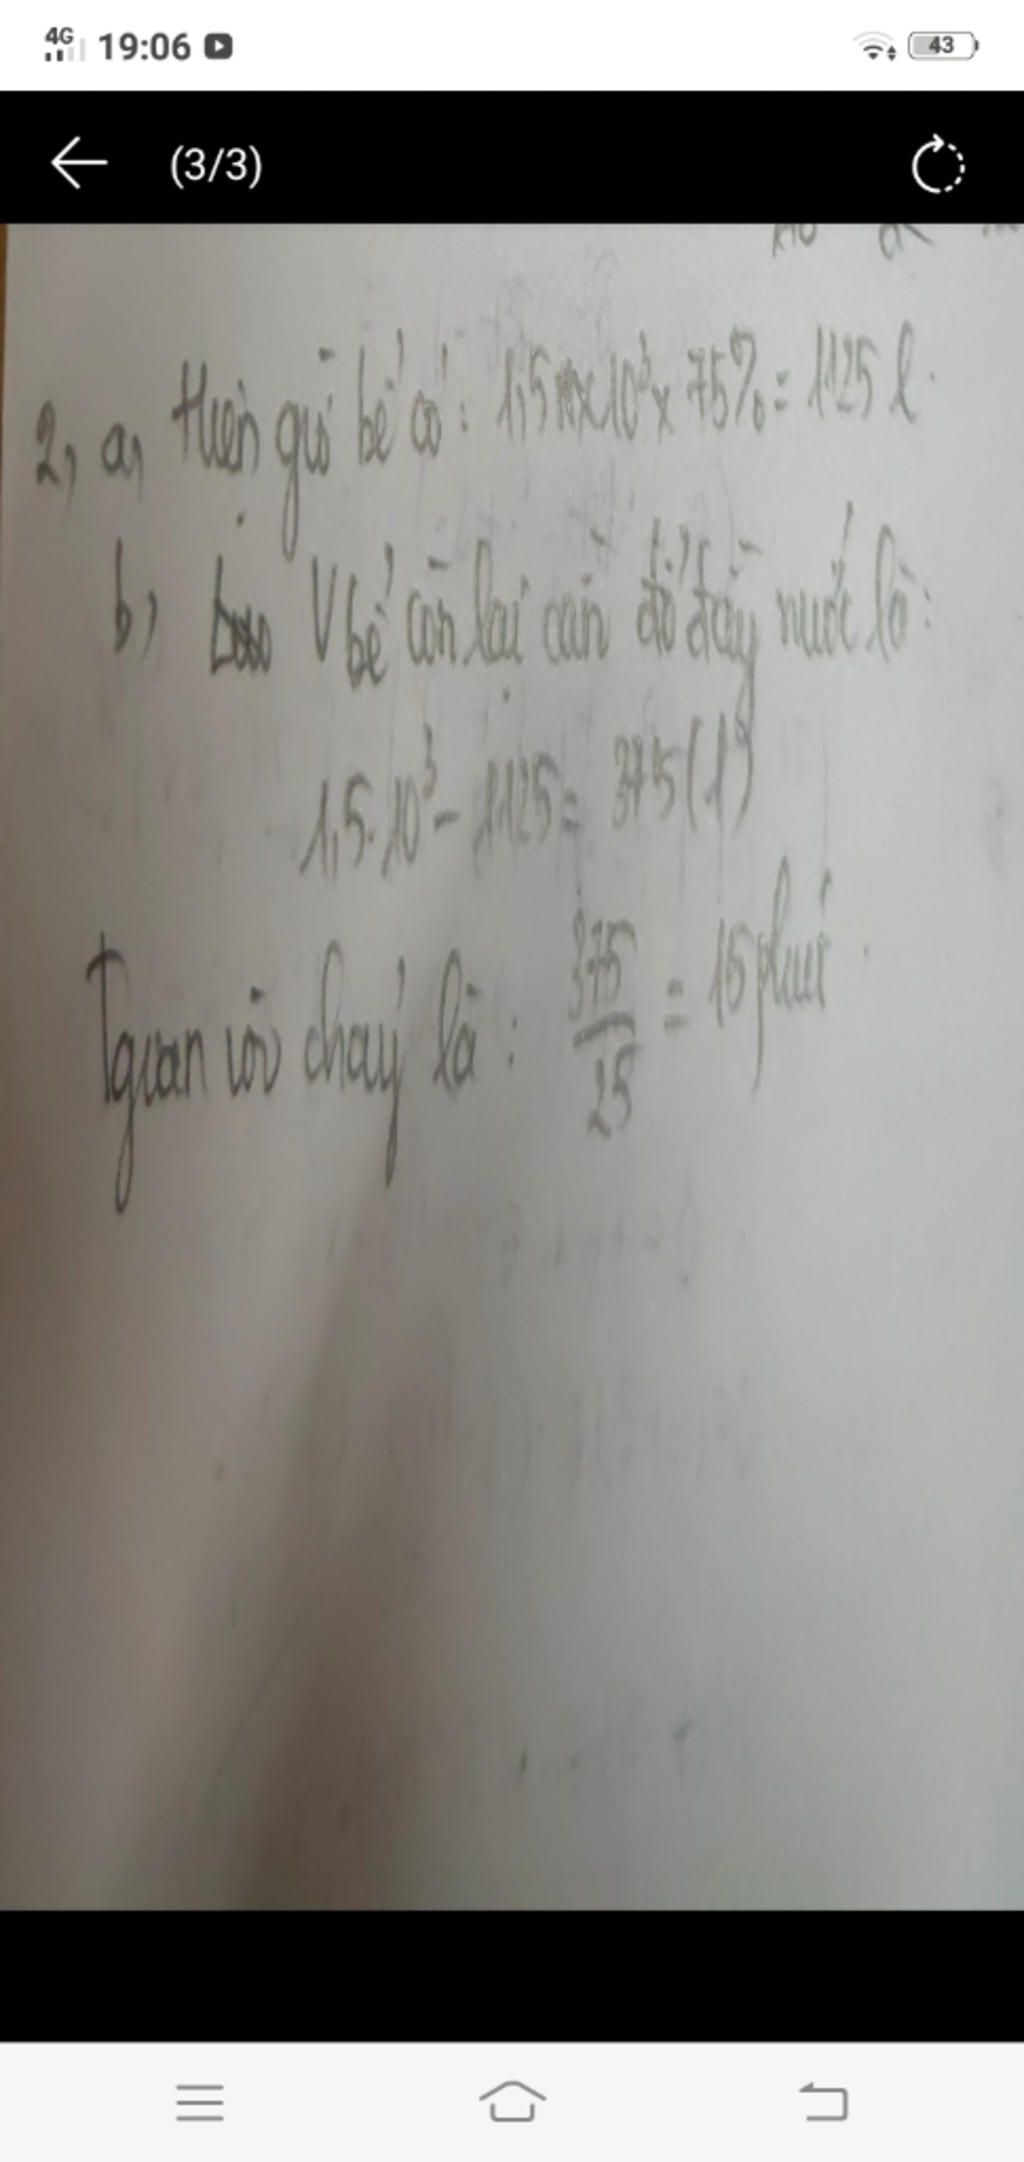 4G 19:06 43
(3/3)
2, a, Hiện giờ bể có: 1,5 x 10³ x 75% = 1125 l.
b, V bể còn lại cần đổ đầy nước là:
1,5.10³ - 1125 = 375 (l)
Tgian vòi chảy là: 375/25 = 15 phút.